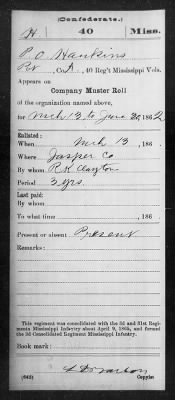 (Confederate.)
H 40 Miss.
P. O. Hankins
Pvt, Co. A, 40 Reg't Mississippi Vols.
Appears on
Company Muster Roll
of the organization named above,
for Mch 13 to June 30, 1862
Enlisted:
When Mch 13, 186
Where Jasper Co
By whom R K Clayton
Period 3 yrs.
Last paid:
By whom
To what time , 186
Present or absent Present
Remarks:
This regiment was consolidated with the 3d and 31st Regiments Mississippi Infantry about April 9, 1865, and formed the 3d Consolidated Regiment Mississippi Infantry.
Book mark:
(642) Copyist.